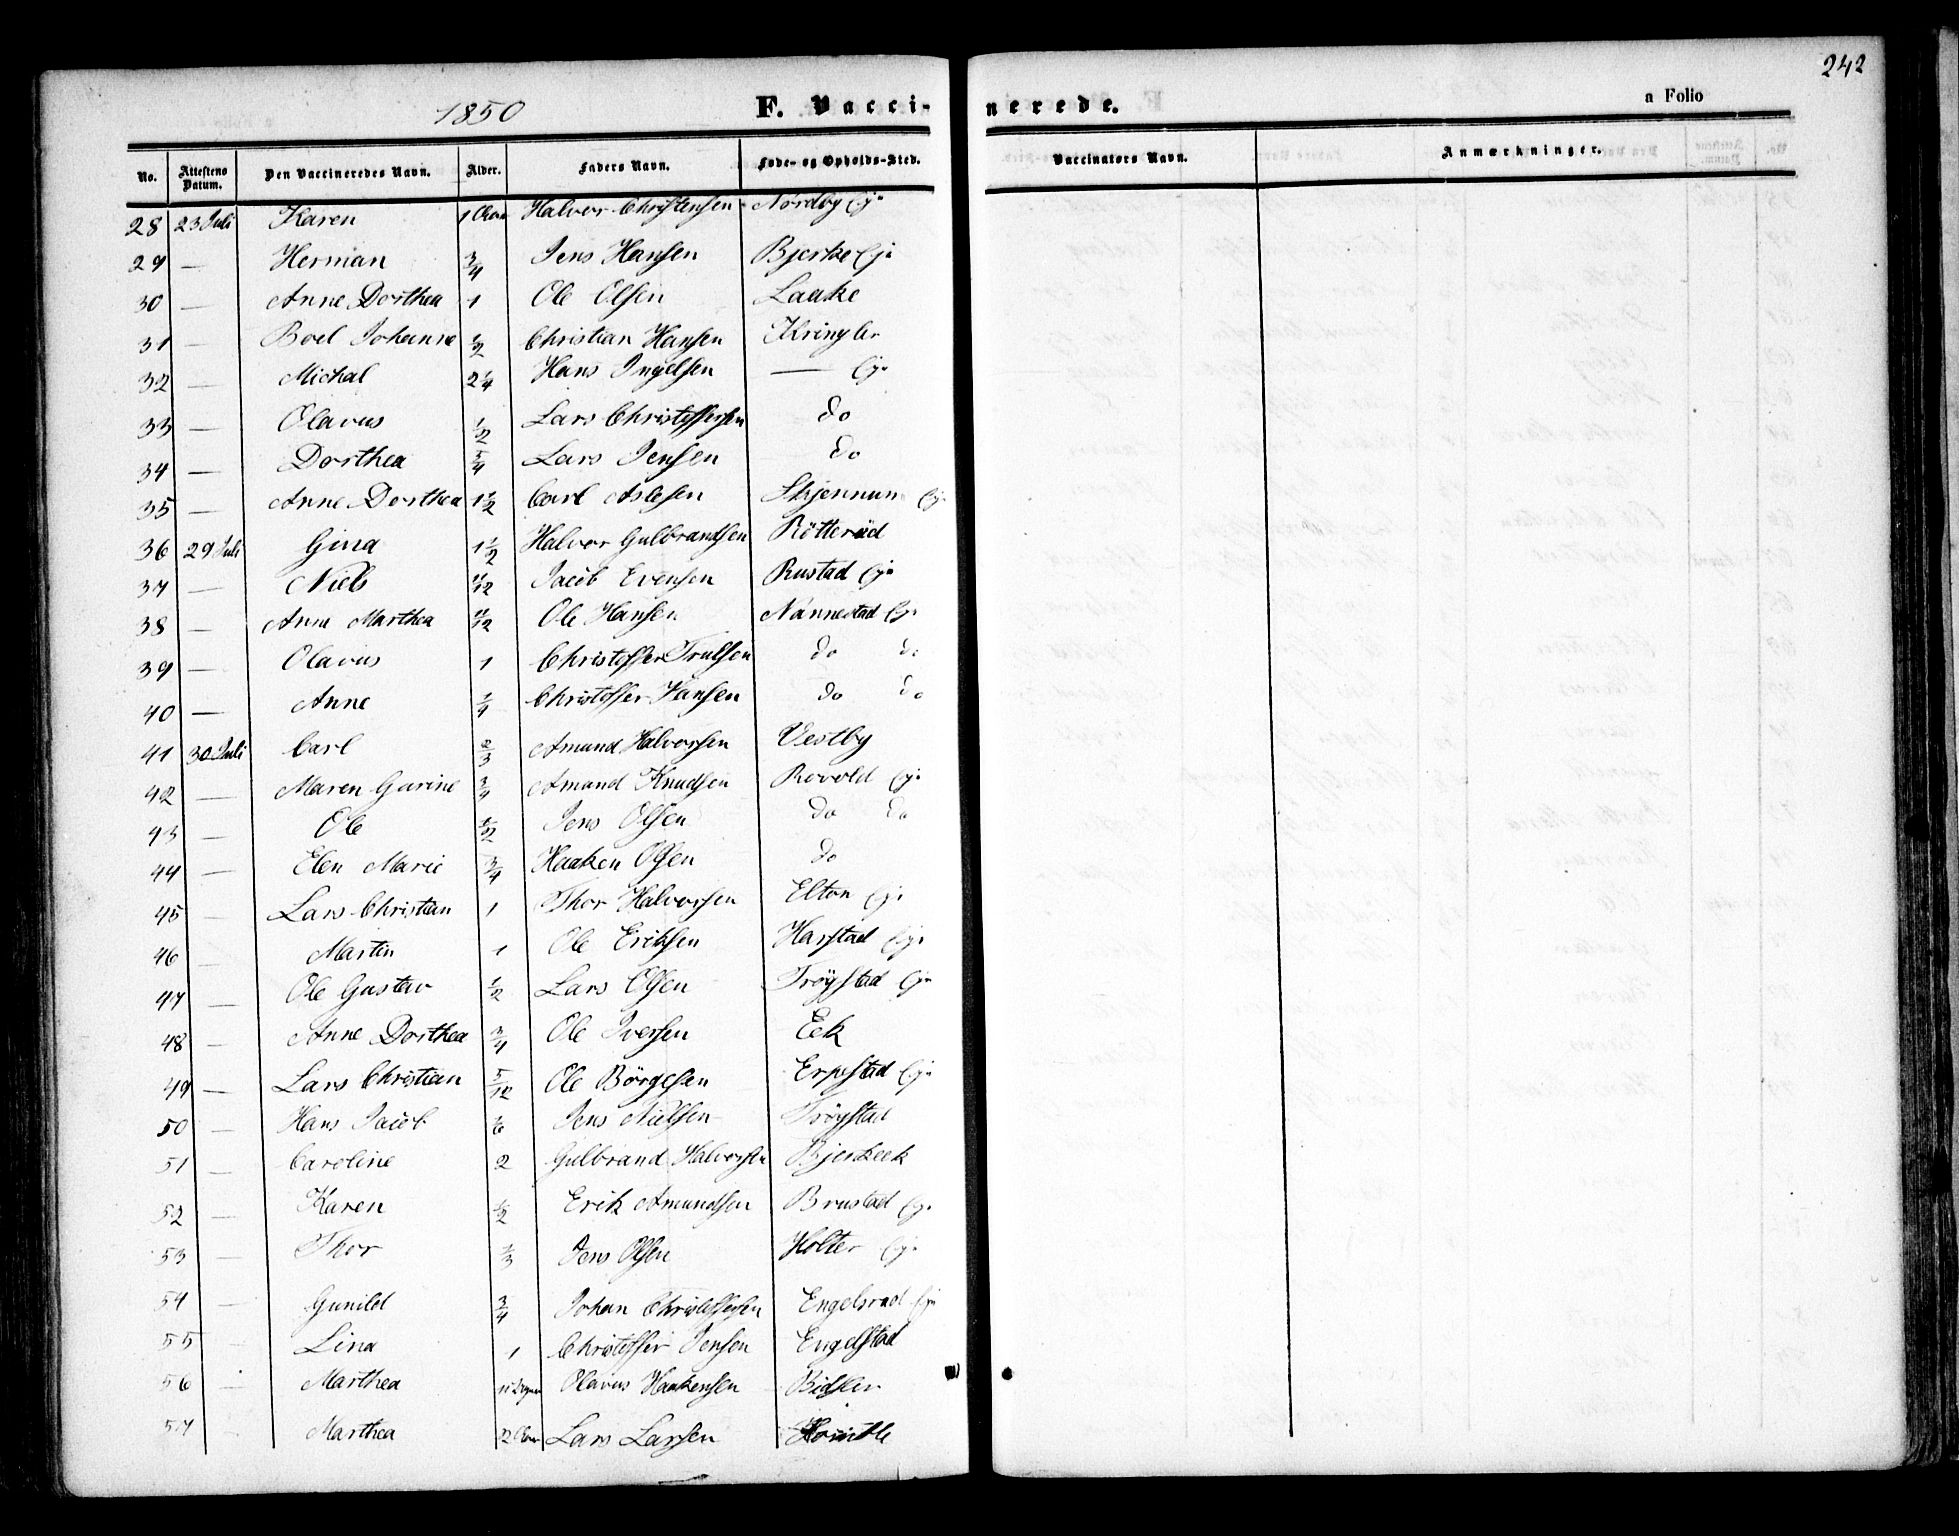 242
1850 F. Vaccinerede. a Folio
No. Attestens Datum. Den Vaccineredes Navn. Alder. Faders Navn. Føde- og Opholds-Sted. Vaccinators Navn. Anmærkninger.
28 23 Juli Karen 1 Halvor Christensen Nordby Eje
29 — Herman 3/4 Jens Hansen Bjerke Eje
30 — Anne Dorthea 1 Ole Olsen Laake
31 — Boel Johanne 1/2 Christian Hansen Kringler
32 — Michal 2 1/4 Hans Ingelsen — Eje
33 — Olavus 1/2 Lars Christoffersen do
34 — Dorthea 5/4 Lars Jensen do
35 — Anne Dorthea 1 1/2 Carl Aslesen Skjennum Eje
36 29 Juli Gina 1 1/2 Halvor Gulbrandsen Rötteröd
37 — Niels /12 Jacob Evensen Rustad Eje
38 — Anne Marthea /12 Ole Hansen Nannestad Eje
39 — Olavus 1 Christoffer Trulsen do do
40 — Anne 1/4 Christoffer Hansen do do
41 30 Juli Carl 2/3 Amund Halvorsen Vestby
42 — Maren Gurine 3/4 Amund Knudsen Rovold Eje
43 — Ole 1/2 Jens Olsen do do
44 — Elen Marie 3/4 Haaken Olsen do
45 — Lars Christian 1 Thor Halvorsen Elton Eje
46 — Martin 1 Ole Eriksen Harstad Eje
47 — Ole Gustav 1/2 Lars Olsen Trögstad Eje
48 — Anne Dorthea 3/4 Ole Iversen Eek
49 — Lars Christian 5/12 Ole Börgesen Erpestad Eje
50 — Hans Jacob 1/6 Jens Nielsen Trögstad
51 — Caroline 2 Gulbrand Halvorsen Bjerkeek
52 — Karen 1/2 Erik Amundsen Brustad Eje
53 — Thor 1/3 Jens Olsen Holter Eje
54 — Gunild 3/4 Johan Christoffersen Engelsrud Eje
55 — Lina 1 Christoffer Jensen Engelstad
56 — Marthea Olavus Haakensen Bidsler
57 — Marthea 2 Lars Larsen